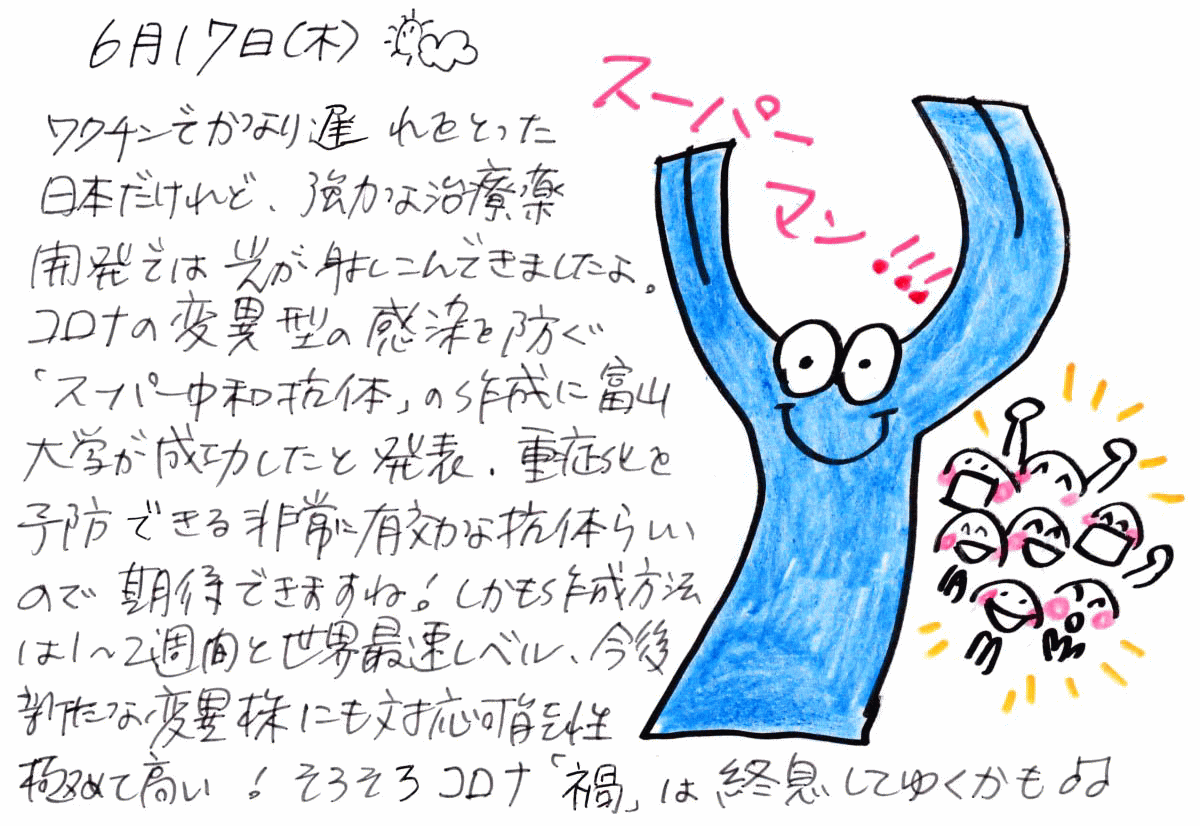 6月17日(木)
スーパー
マン!!!
ワクチンでかなり遅れをとった
日本だけれど、強力な治療薬
開発では光が射しこんできましたよ。
コロナの変異型の感染を防ぐ
「スーパー中和抗体」の作成に富山
大学が成功したと発表.重症化を
予防できる非常に有効な抗体らしい
ので期待できますね!しかも作成方法
は1〜2週間と世界最速レベル、今後
新たな変異株にも対応可能性
極めて高い!そろそろコロナ「禍」は終息してゆくかも♫